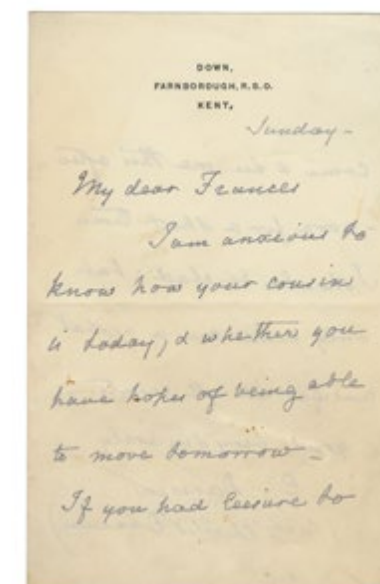 DOWN,
FARNBOROUGH, R.S.O.
KENT,
Sunday –
My dear Frances
I am anxious to
know how your cousin
is today, & whether you
have hopes of being able
to move tomorrow –
If you had leisure to